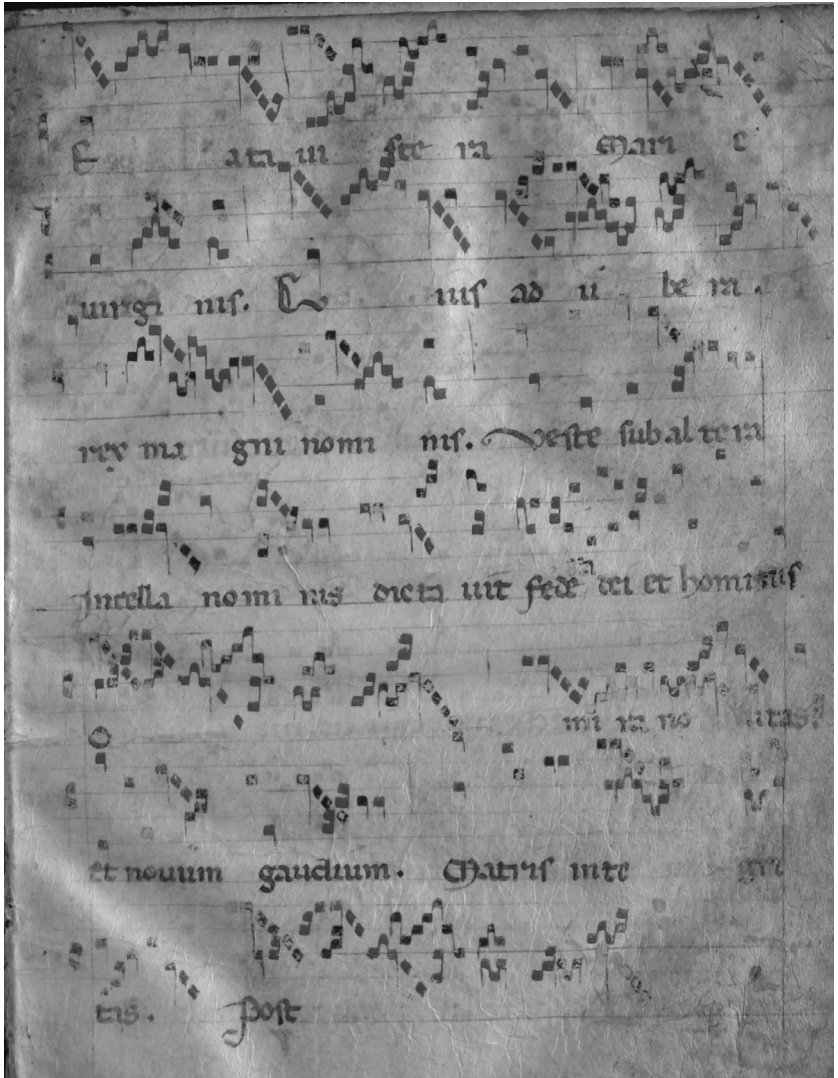 ata ui sce ra Mari e
uirgi nis. E ius ad u be ra.
rex ma gni nomi nis. Veste sub al te ra
In cella no mi nis dicta uit fede dei et hominis
O mi ra no uitas.
et nouum gaudium. Matris inte gri
tis. Post